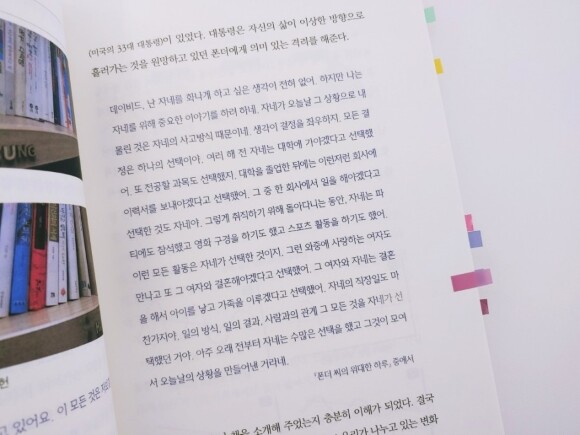 (미국의 33대 대통령)이 있었다. 대통령은 자신의 삶이 이상한 방향으로
흘러가는 것을 원망하고 있던 폰더에게 의미 있는 격려를 해준다.
데이비드, 난 자네를 화나게 하고 싶은 생각이 전혀 없어. 하지만 나는
자네를 위해 중요한 이야기를 하려 하네. 자네가 오늘날 그 상황으로 내
몰린 것은 자네의 사고방식 때문이네. 생각이 결정을 좌우하지. 모든 결
정은 하나의 선택이야. 여러 해 전 자네는 대학에 가야겠다고 선택했
어. 또 전공할 과목도 선택했지. 대학을 졸업한 뒤에는 이런저런 회사에
이력서를 보내야겠다고 선택했어. 그 중 한 회사에서 일을 해야겠다고
선택한 것도 자네야. 그렇게 취직하기 위해 돌아다니는 동안, 자네는 파
티에도 참석했고 영화 구경을 하기도 했고 스포츠 활동을 하기도 했어.
이런 모든 활동은 자네가 선택한 것이지. 그런 와중에 사랑하는 여자도
만나고 또 그 여자와 결혼해야겠다고 선택했어. 그 여자와 자네는 결혼
을 해서 아이를 낳고 가족을 이루겠다고 선택했어. 자네의 직장일도 마
찬가지야. 일의 방식, 일의 결과, 사람과의 관계 그 모든 것을 자네가 선
택했던 거야. 아주 오래 전부터 자네는 수많은 선택을 했고 그것이 모여
서 오늘날의 상황을 만들어낸 거라네.
『폰더 씨의 위대한 하루』 중에서
소개해 주었는지 충분히 이해가 되었다. 결국
우리가 나누고 있는 변화
UNG
현
고 있어요. 이 모든 것은